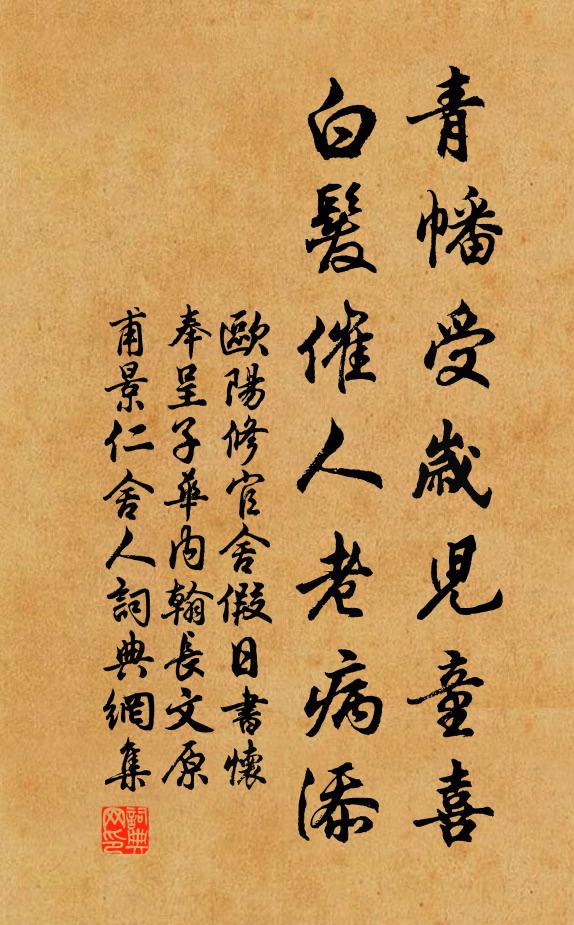 青幡受歲兒童喜
白髮催人老病添
歐陽修官舍假日書懷
奉呈子華內翰長文原
甫景仁舍人詞典網集
詞典网印